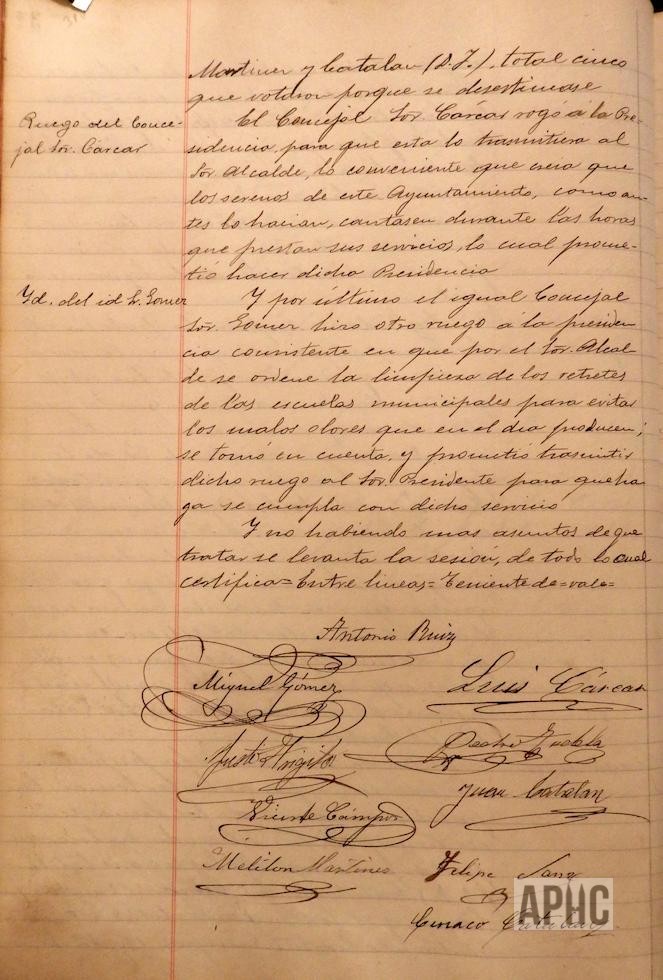 Martinez y Catalan (D. J.), total cinco
que votaron porque se desestimase
Ruego del Conce-
jal Sor. Cárcar
El Concejal Sor. Cárcar rogó á la Pre-
sidencia, para que esta lo trasmitiera al
Sor. Alcalde, lo conveniente que creia que
los serenos de este Ayuntamiento, como an-
tes lo hacian, cantasen durante las horas
que prestan sus servicios, lo cual prome-
tió hacer dicha Presidencia
Yd. del id Sr. Gomez
Y por último el igual Concejal
Sor. Gomez hizo otro ruego á la presiden
cia consistente en que por el Sor. Alcal-
de se ordene la limpieza de los retretes
de las escuelas municipales para evitar
los malos olores que en el dia producen;
se tomó en cuenta, y prometió trasmitir
dicho ruego al Sor. Presidente para que ha
ga se cumpla con dicho servicio
Y no habiendo mas asuntos de que
tratar se levanta la sesión, de todo lo cual
certifica = Entre lineas = Teniente de = vale =
Antonio Ruiz
Miguel Gómez
Luis Cárcar
Justo
Pedro
Juan Catalan
Vicente Campos
Meliton Martinez
Felipe Sanz
APHC